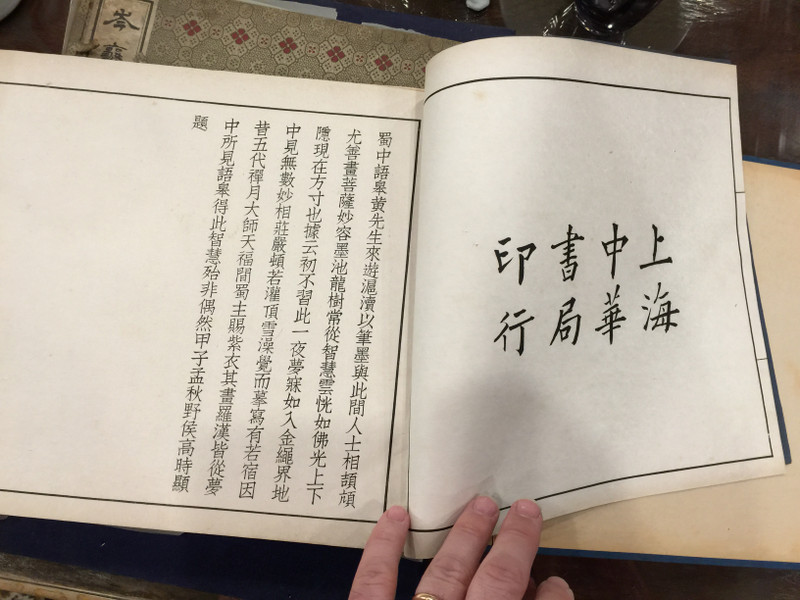 上海
中華
書局
印行
蜀中語臯黃先生來遊滬瀆以筆墨與此間人士相頡頏
尤善畫菩薩妙容墨池龍樹常從智慧雲恍如佛光上下
隱現在方寸也據云初不習此一夜夢寐如入金繩界地
中見無數妙相莊嚴頓若灌頂雪澡覺而摹寫有若宿因
昔五代禪月大師天福間蜀主賜紫衣其畫羅漢皆從夢
中所見語臯得此智慧殆非偶然甲子孟秋野侯高時顯
題
岑